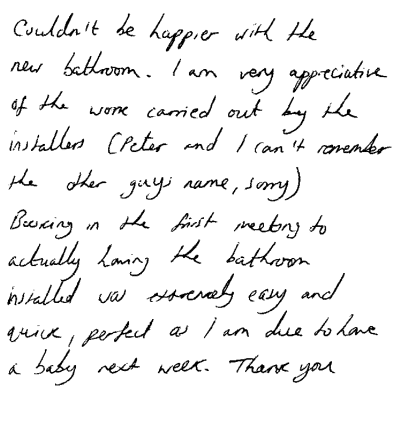 Couldn't be happier with the
new bathroom. I am very appreciative
of the work carried out by the
installers (Peter and I can't remember
the other guys name, sorry)
Booking in the first meeting to
actually having the bathroom
installed was extremely easy and
quick, perfect as I am due to have
a baby next week. Thank you